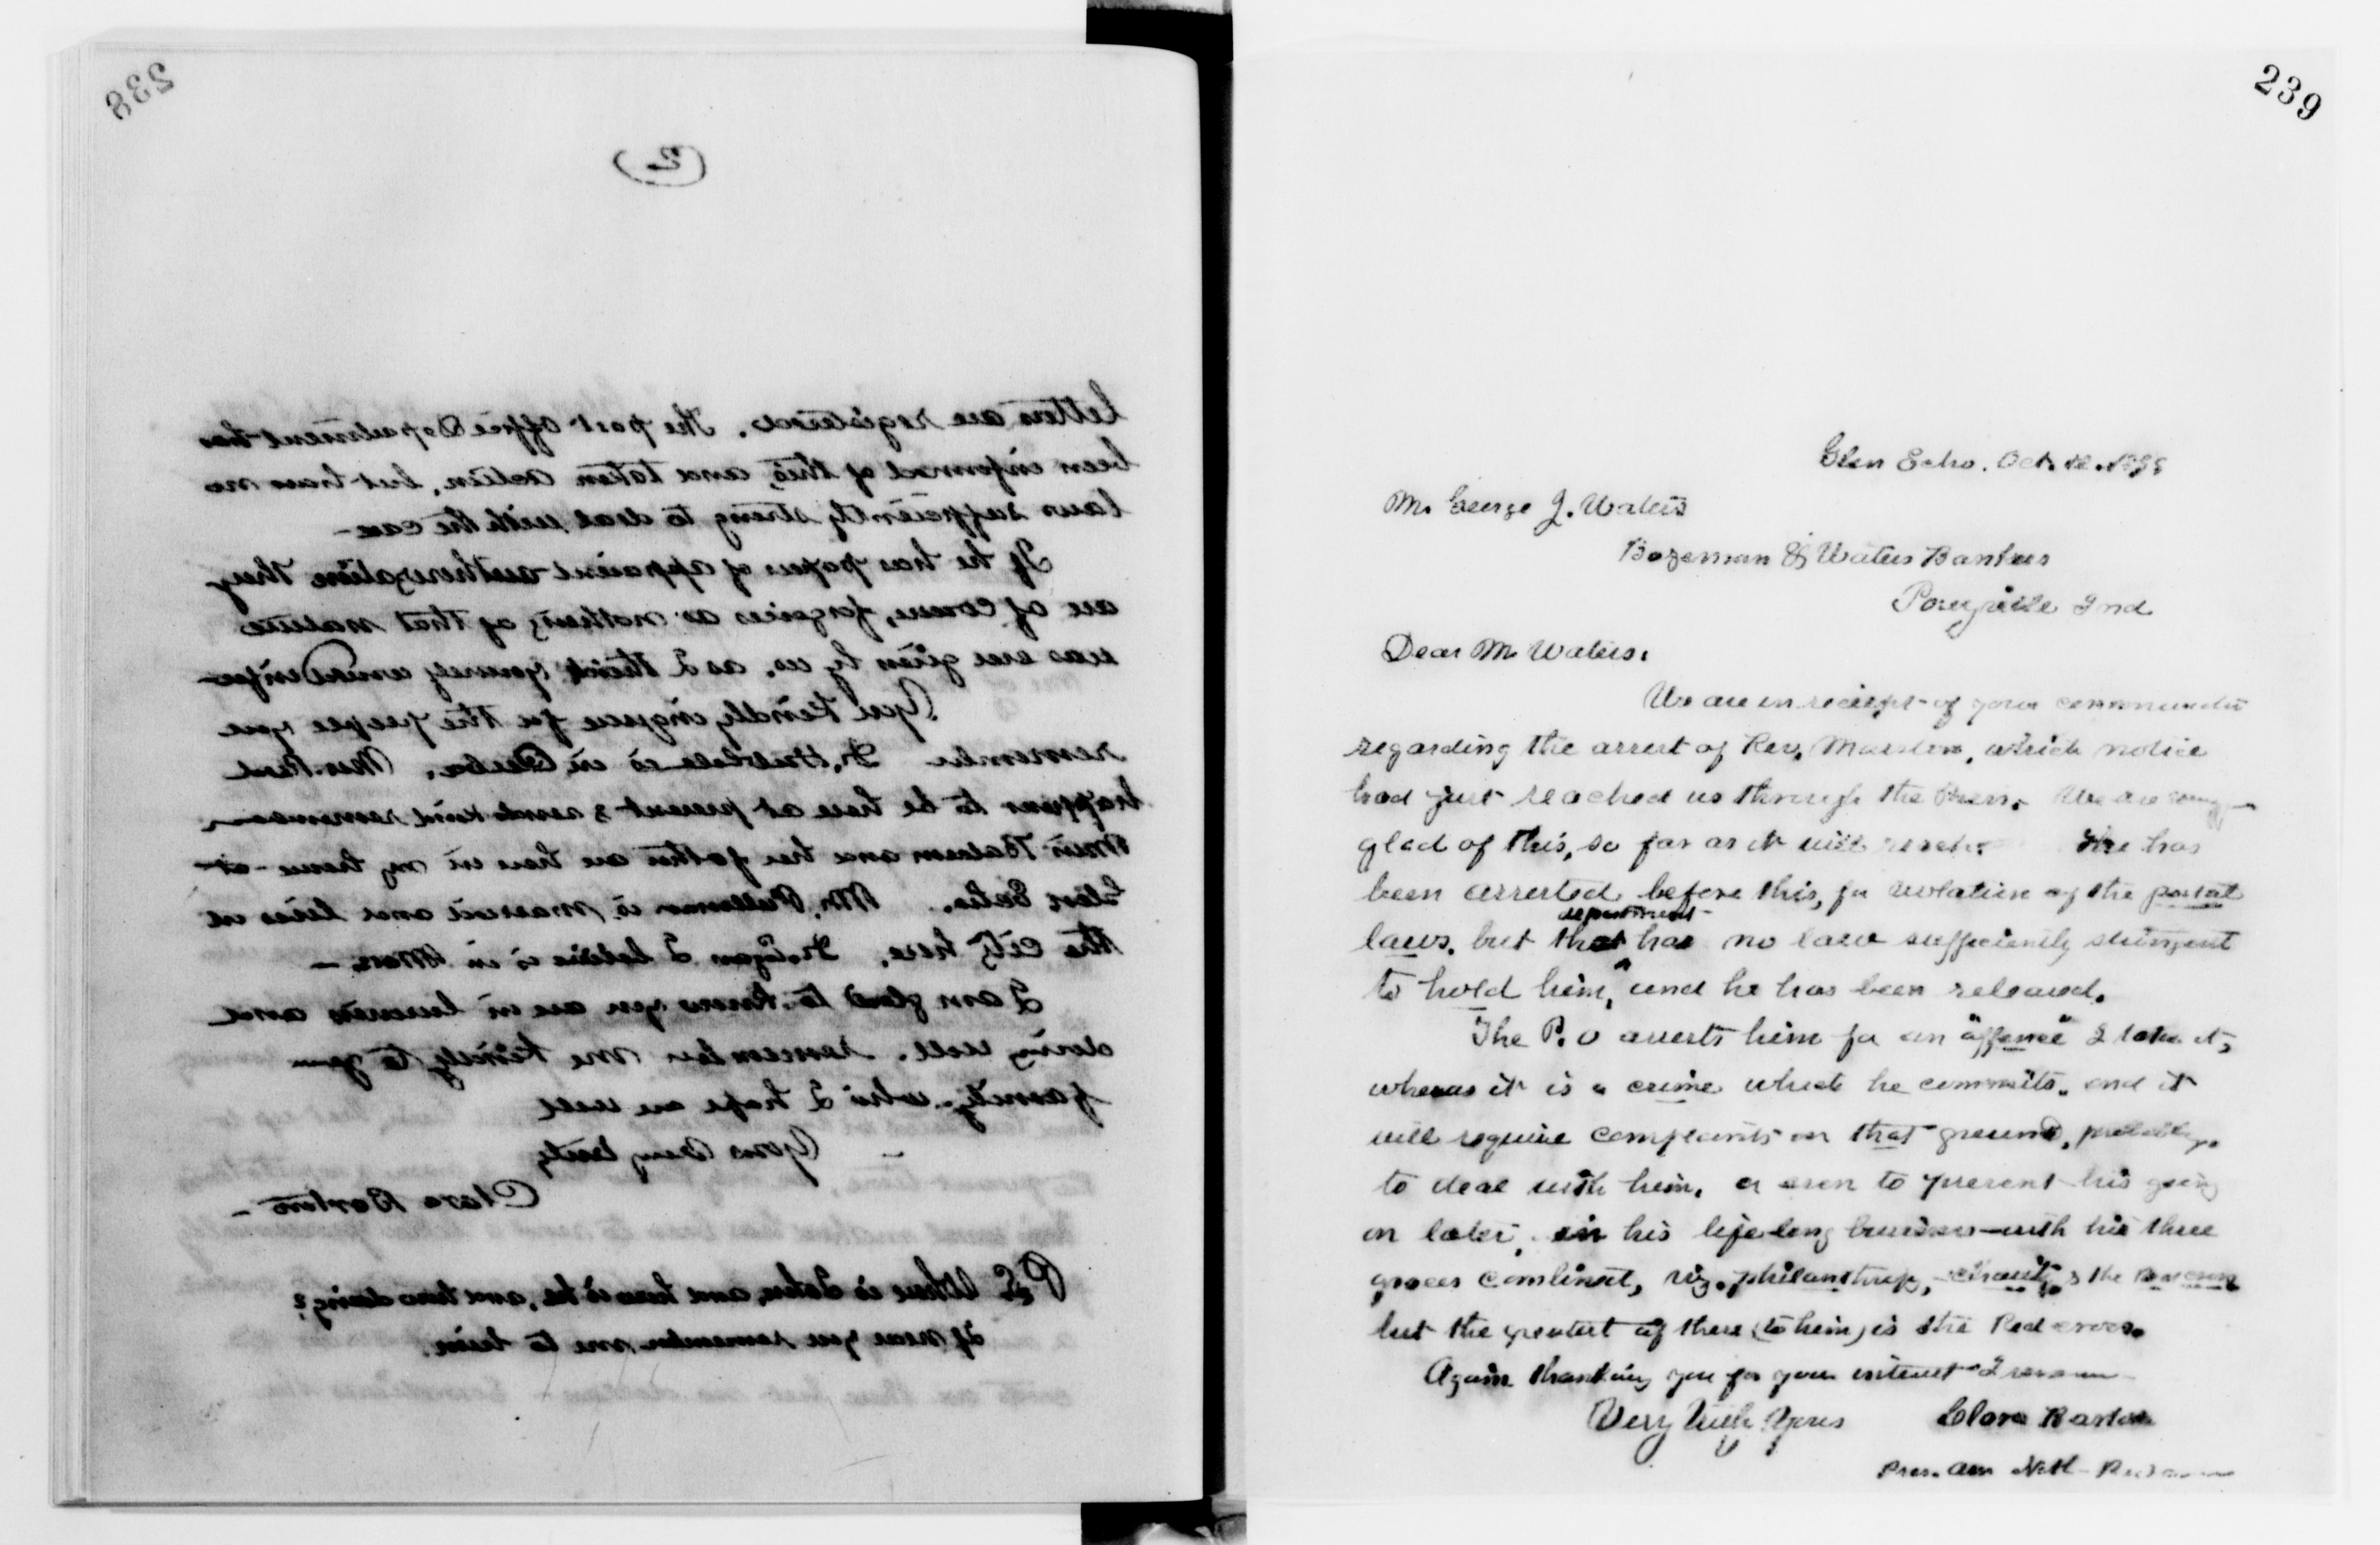 238
(2)
letters are registered. The post office Department has
been informed of this, and taken action, but have no
laws sufficiently strong to deal with the case—
If he has papers of apparent authorization they
are of course, forgeries as nothing of that nature
was ever given by us, as I think you
You kindly inquire for the people you
remember Dr. Hubbell is in Cuba.
happens to be here at present & sends kind
and her father are here in my home - at
Glen Echo. Mr. Pullman is married and lives in
the city here. Dr. Egan I believe is in Mass. —
I am glad to know you are in business and
doing well. Remember me kindly to your
family, who I hope are well
Yours Very truly
Clara Barton —
P.S. Where is John, and how is he, and how doing?
If near you remember me to him.
239
Glen Echo. Oct.
Mr George J. Waters
Bozeman & Waters Bankers
Poseyville Ind
Dear Mr Waters.
We are in receipt of your
regarding the arrest of Rev. which notice
had just reached us through the Press. We are
glad of this, so far as it will reach. He has
been arrested before this, for violation of the postal
department
laws, but that has no law sufficiently stringent
to hold him, and he has been released.
The P.O arrests him for an "offence" I take it,
whereas it is a crime which he commits. and it
will require complaints on that ground, probably
to deal with him, or even to prevent his going
on later, in his life long business with his three
graces combined, viz. philanthropy, charity, & the Red Cross
but the greatest of these (to him) is the Red Cross.
Again thanking you for your interest I remain
Very truly Yours Clara Barton
Pres. Am Natl Red